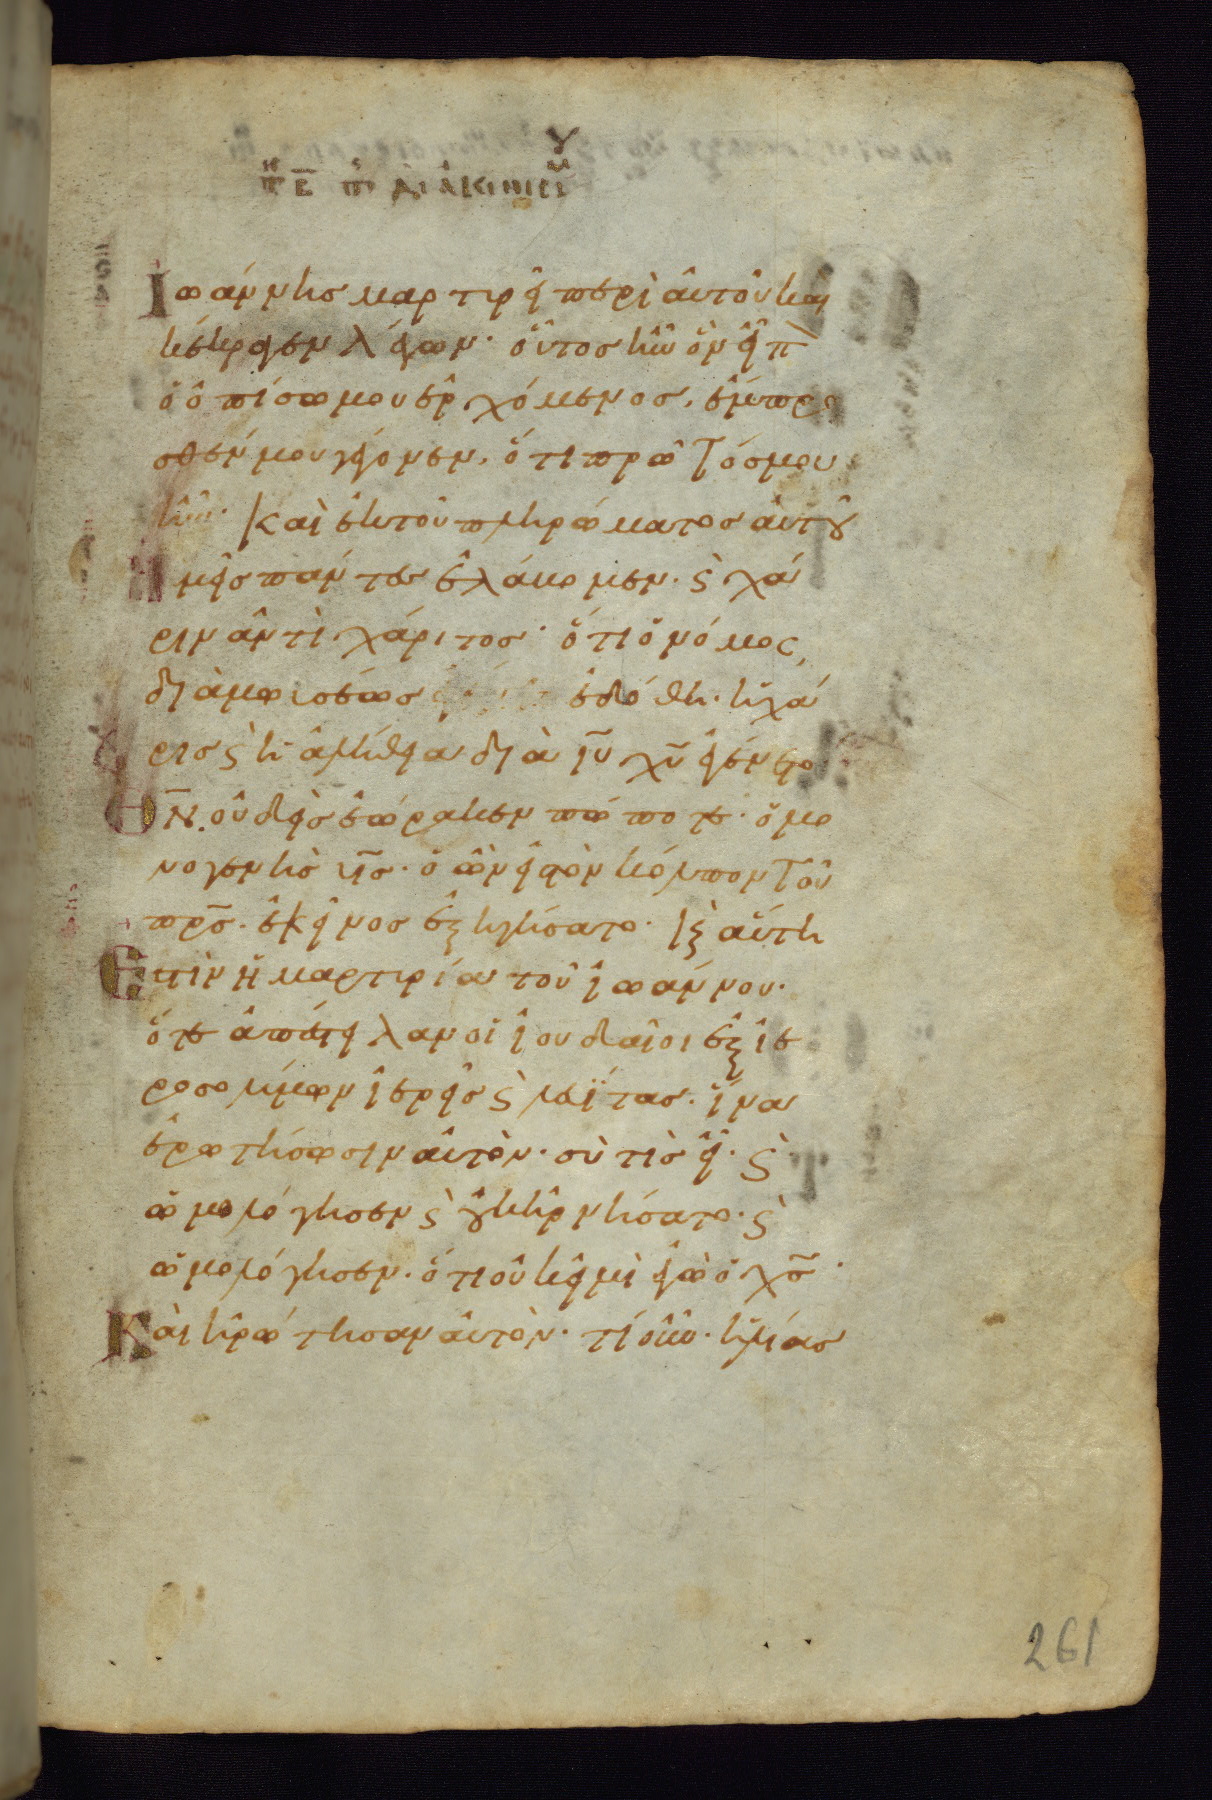 Ἰωάννης μαρτυρεῖ περὶ αὐτοῦ καὶ
κέκραγεν λέγων· οὗτος ἦν ὃν εἶπ
ὁ ὀπίσω μου ἐρχόμενος, ἔμπρο
σθέν μου γέγονεν, ὅτι πρῶτός μου
ἦν· Καὶ ἐκ τοῦ πληρώματος αὐτοῦ
ἡμεῖς πάντες ἐλάβομεν· ϗ χά
ριν ἀντὶ χάριτος· ὅτι ὁ νόμος,
διὰ μωισέως ἐδόθη· ἡ χά
ρις ϗ ἡ ἀλήθεια διὰ ιυ χυ ἐγένετο
Θν. οὐδεὶς ἑώρακεν πώποτε· ὁ μο
νογενὴς υς· ὁ ὢν εἰς τὸν κόλπον τοῦ
πρς· ἐκεῖνος ἐξηγήσατο· ϗ αὕτη
Ἐστὶν ἡ μαρτυρία τοῦ ἰωάννου·
ὅτε ἀπέστειλαν οἱ ἰουδαῖοι ἐξ ἱε
ροσολύμων ἱερεῖς ϗ λευΐτας· ἵνα
ἐρωτήσωσιν αὐτὸν· σὺ τίς εἶ· ϗ
ὡμολόγησεν ϗ οὐκ ἠρνήσατο· ϗ
ὡμολόγησεν· ὅτι οὐκ εἰμὶ ἐγὼ ὁ χς·
Καὶ ἠρώτησαν αὐτὸν· τί οὖν· ἡλίας
261